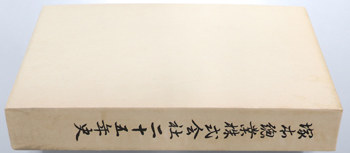 塚本總業株式会社二十五年史